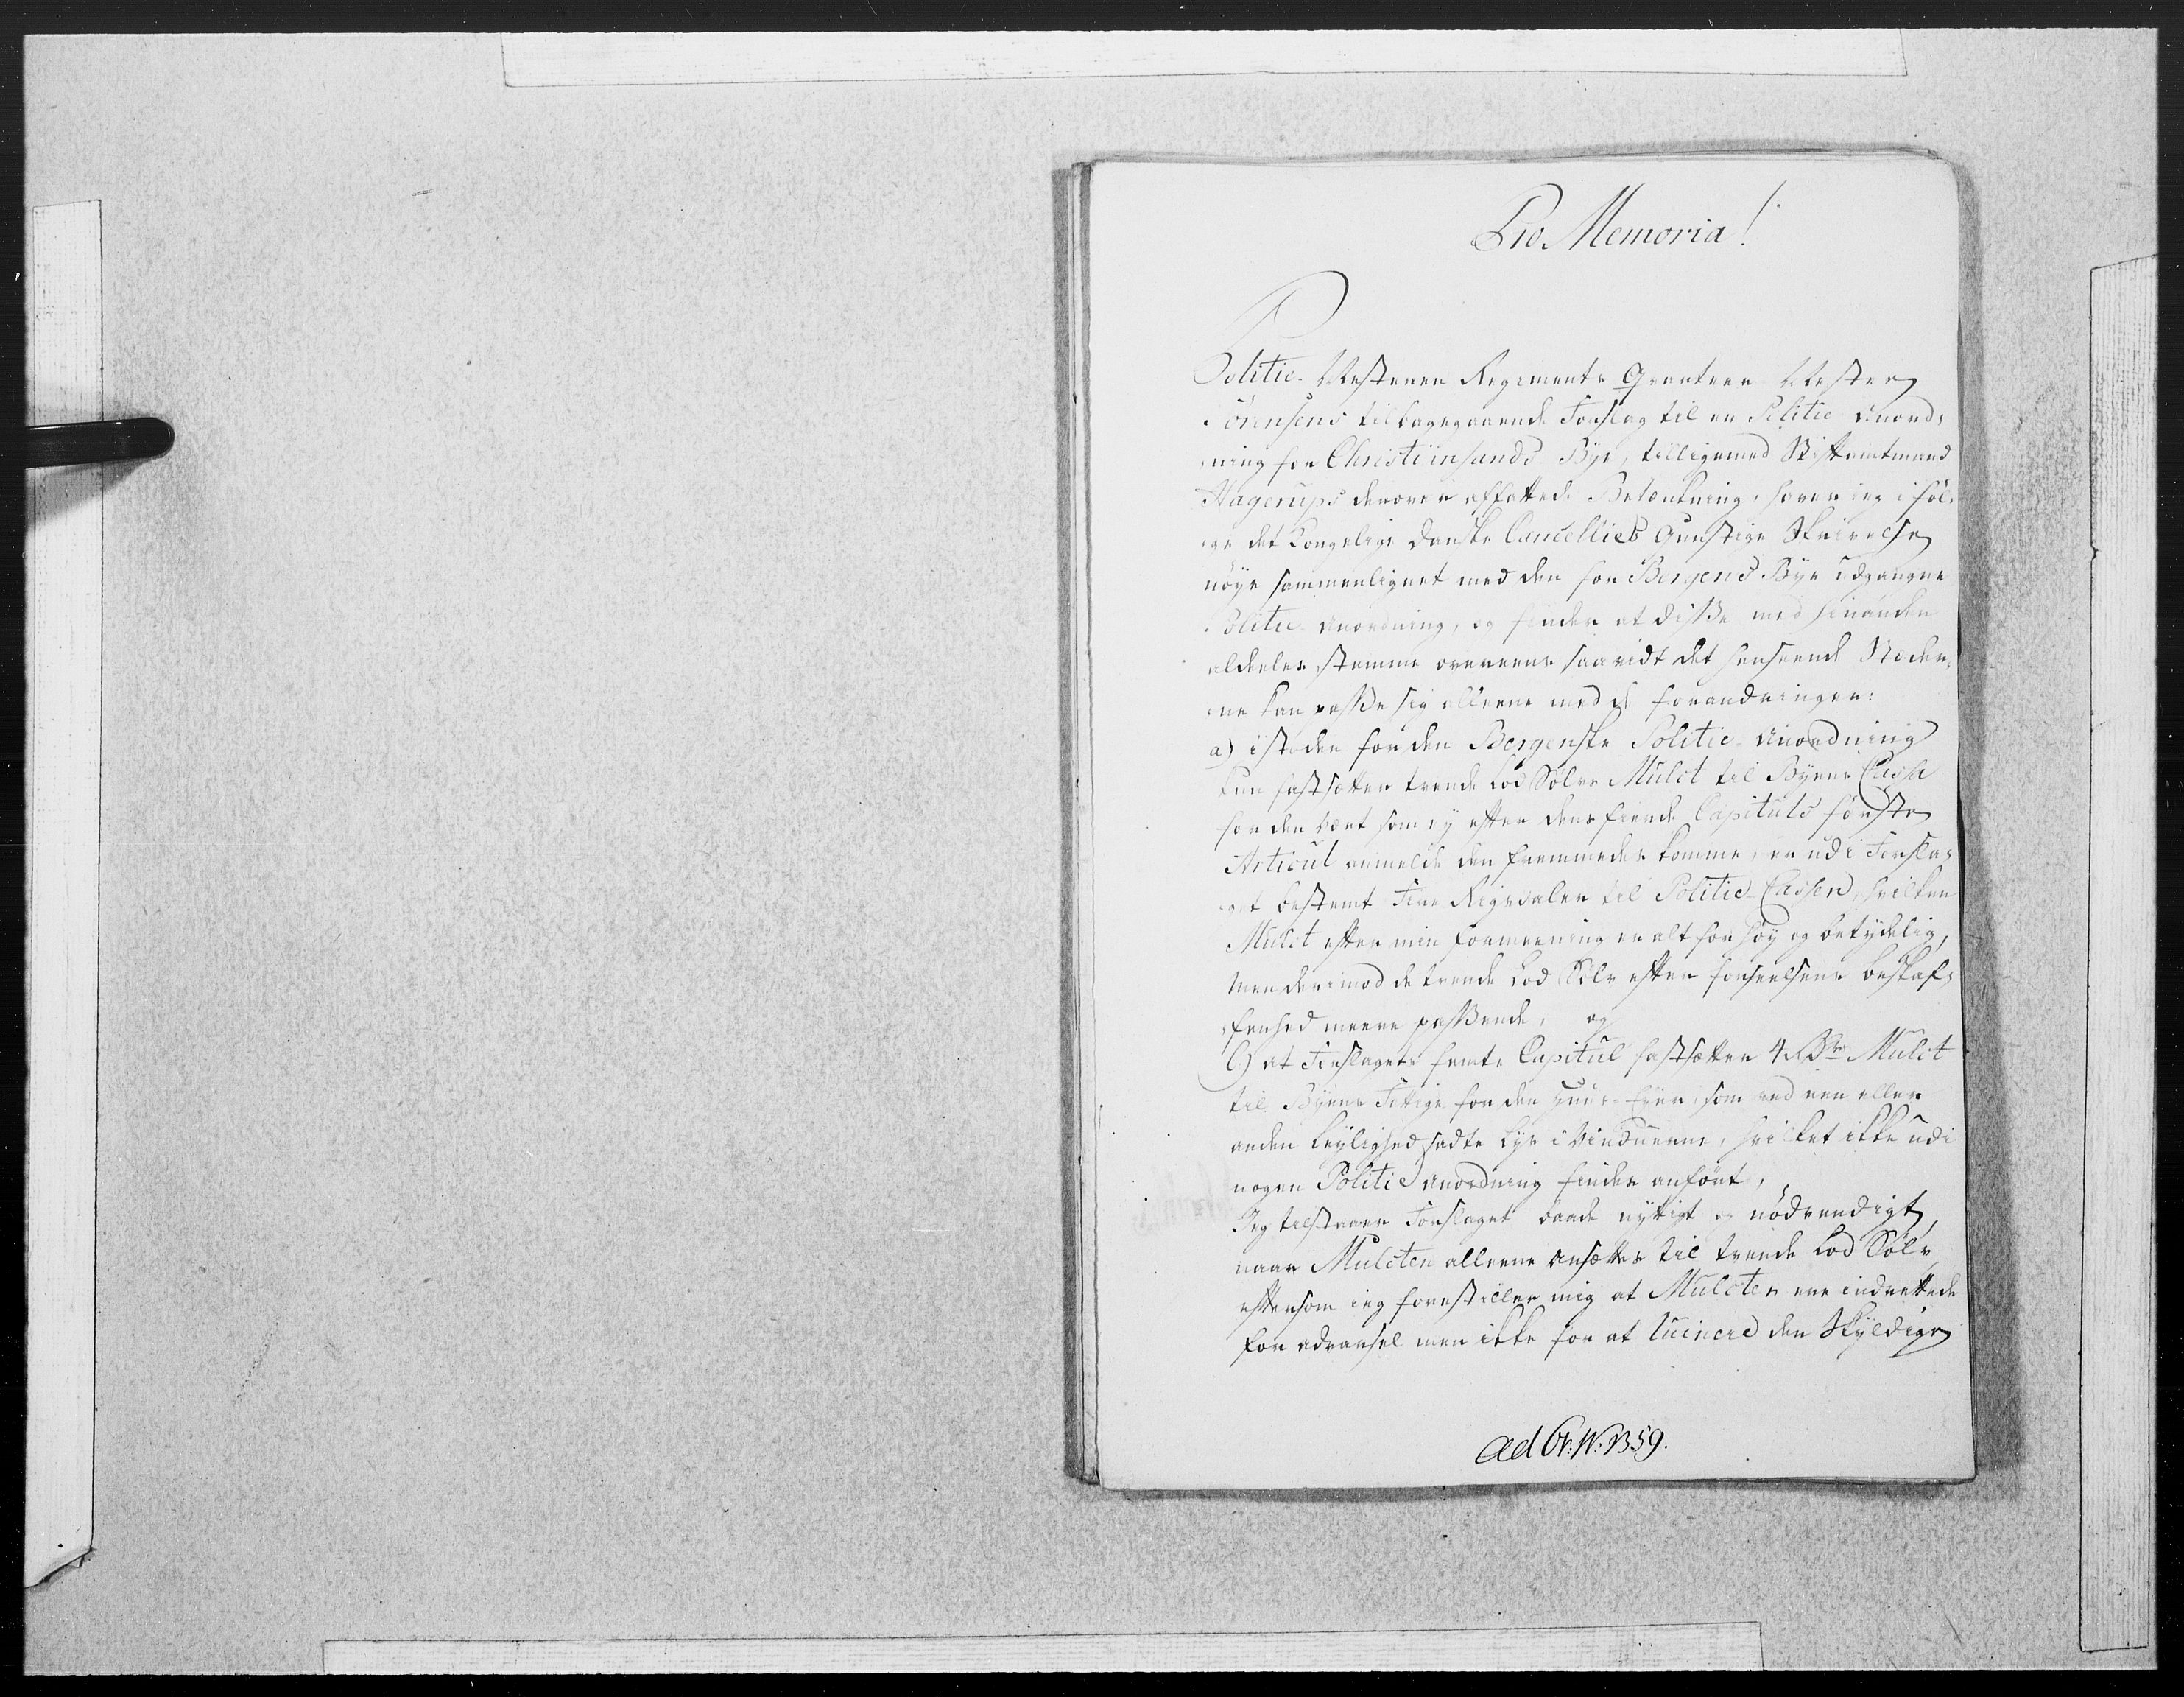 Pro Memoria!
Politie-Mesteren Regiments Qvarteer Mester
Sörensens tilbagegaaende Forslag til en Politie Anord-
ning for Christiinsands Bye, tilligemed Stiftamtmand
Hagerups derover affattede Betænkning, haver jeg i föl-
ge det Kongelige Danske Cancellies Gunstige Skrivelse
nöye sammenlignet med den for Bergens Bye udgangne
Politie Anordning, og finder at disse med hinanden
aldeeles stemme overeens saavidt det henseende Stæder-
ne kan passe sig alleene med de forandringer:
a) istæden for den Bergenske Politie-Anordning
kun fastsætter trende Lod Sölv Mulct til Byens Cassa
for den Vært som ey efter dens fierde Capituls förste
Articul anmelde den fremmedes komme, er udi Forsla-
get bestemt Fire Rigsdaler til Politie-Cassen, hvilken
Mulct efter min formeening er alt for höy og betydelig,
men derimod de trende Lod Sölv efter forseelsens beskaf-
fenhed meere passende, og
b) at Forslagets femte Capitul fastsætter 4 Rdr Mulct
til Byens Fattige for den Huus-Eyer, som ved een eller
anden Leylighed sadte Lys i Vinduerne, hvilket ikke udi
nogen Politie Anordning findes anfört,
Jeg tilstaaer Forslaget baade nyttigt og nödvendigt,
naar Mulcten alleene ansættes til trende Lod Sölv,
eftersom jeg forestiller mig at Mulcter ere indrettede
for advarsel men ikke for at ruinere den Skyldige
ad Br: N: 1359.